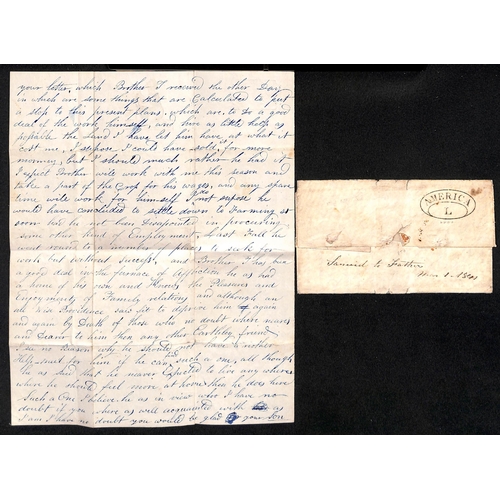 your letter, which Brother I received the other Day
in which are some things that are Calculated to put
a stop to this present plans, which are, to Do a good
deal of the work himself, and hire as little help as
possable the land I have let him have at what it
cost me, I supose I could have sold for more
morney, but I should much rather he had it
I expect Brother will work with me this season and
take a part of the Crop for his wages, and any spare
time will work for himself I not supose he
would have concluded to settle down to Farming so
soon had he not ben Disapointed in procuring
some other kind of Employment, Last Fall he
went round to a number of places to seek for
work but without success, and Brother Thos has
a good deal in the furnace of afflection he as had
a home of his own and Knows the Pleasures and
Enjoyments of Family relations and although an
all wise Providence saw fit to deprive him again
and again by Death of those who no doubt where nearer
and Dearer to him then any other Earthley friend
I see no reason why he should not have another
Help meet for him if he can such a one, all though
he as said that he never Expected to live any where
where he should feel more at home then he does here
Such a One I believe he as in view who I have no
doubt if you where as well acquainted with as
I am I have no doubt you would be glad for your Son
AMERICA
L
Samuel to Father